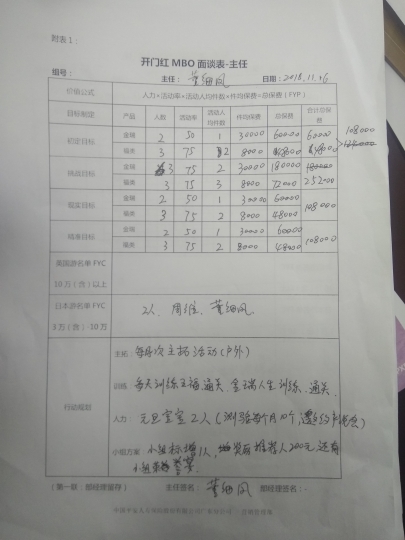 附表1：
开门红 MBO 面谈表-主任
组号： 主任：董细凤 日期：2018.11.16
价值公式 人力×活动率×活动人均件数×件均保费=总保费（FYP）
目标制定 产品 人数 活动率 活动人均件数 件均保费 总保费 合计总保费
初定目标 金瑞 2 50 1 30000 60000 60000 108000
福类 3 75 2 8000 48000
挑战目标 金瑞 3 75 2 30000 180000
福类 3 75 3 8000 72000 252000
现实目标 金瑞 2 50 1 30000 60000 108000
福类 3 75 2 8000 48000
精准目标 金瑞 2 50 1 30000 60000 108000
福类 3 75 2 8000 48000
英国游名单 FYC
10万（含）以上
日本游名单 FYC
3万（含）-10万 2人 周维 董细凤
行动规划 主拓：每月次主拓活动（户外）
训练：每天训练五福通关、金瑞人生训练、通关
人力：元旦宝宝2人（测验每个月10个，
小组方案 小组标增1人，推荐人200元，还有
小组
（第一联：部经理留存） 主任签名：董细凤 部经理签名：